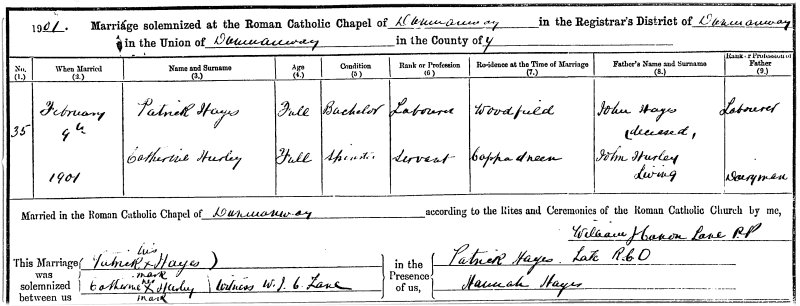 1901. Marriage solemnized at the Roman Catholic Chapel of Dunmanway in the Registrar's District of Dunmanway
in the Union of Dunmanway in the County of
No. When Married Name and Surname Age Condition Rank or Profession Residence at the Time of Marriage Father's Name and Surname Rank or Profession of Father
(1.) (2.) (3.) (4.) (5) (6) (7.) (8.) (9.)
35 February 9th 1901
Patrick Hayes Full Bachelor Labourer Woodfield John Hayes (deceased) Labourer
Catherine Hurley Full Spinster Servant Coppadneen John Hurley Living Dairyman
Married in the Roman Catholic Chapel of Dunmanway according to the Rites and Ceremonies of the Roman Catholic Church by me,
William Canon Lane P.P
This Marriage was solemnized between us
Patrick his x mark Hayes
Catherine her x mark Hurley
Witness W. J. C. Lane
in the Presence of us,
Patrick Hayes Late R.C.O
Hannah Hayes